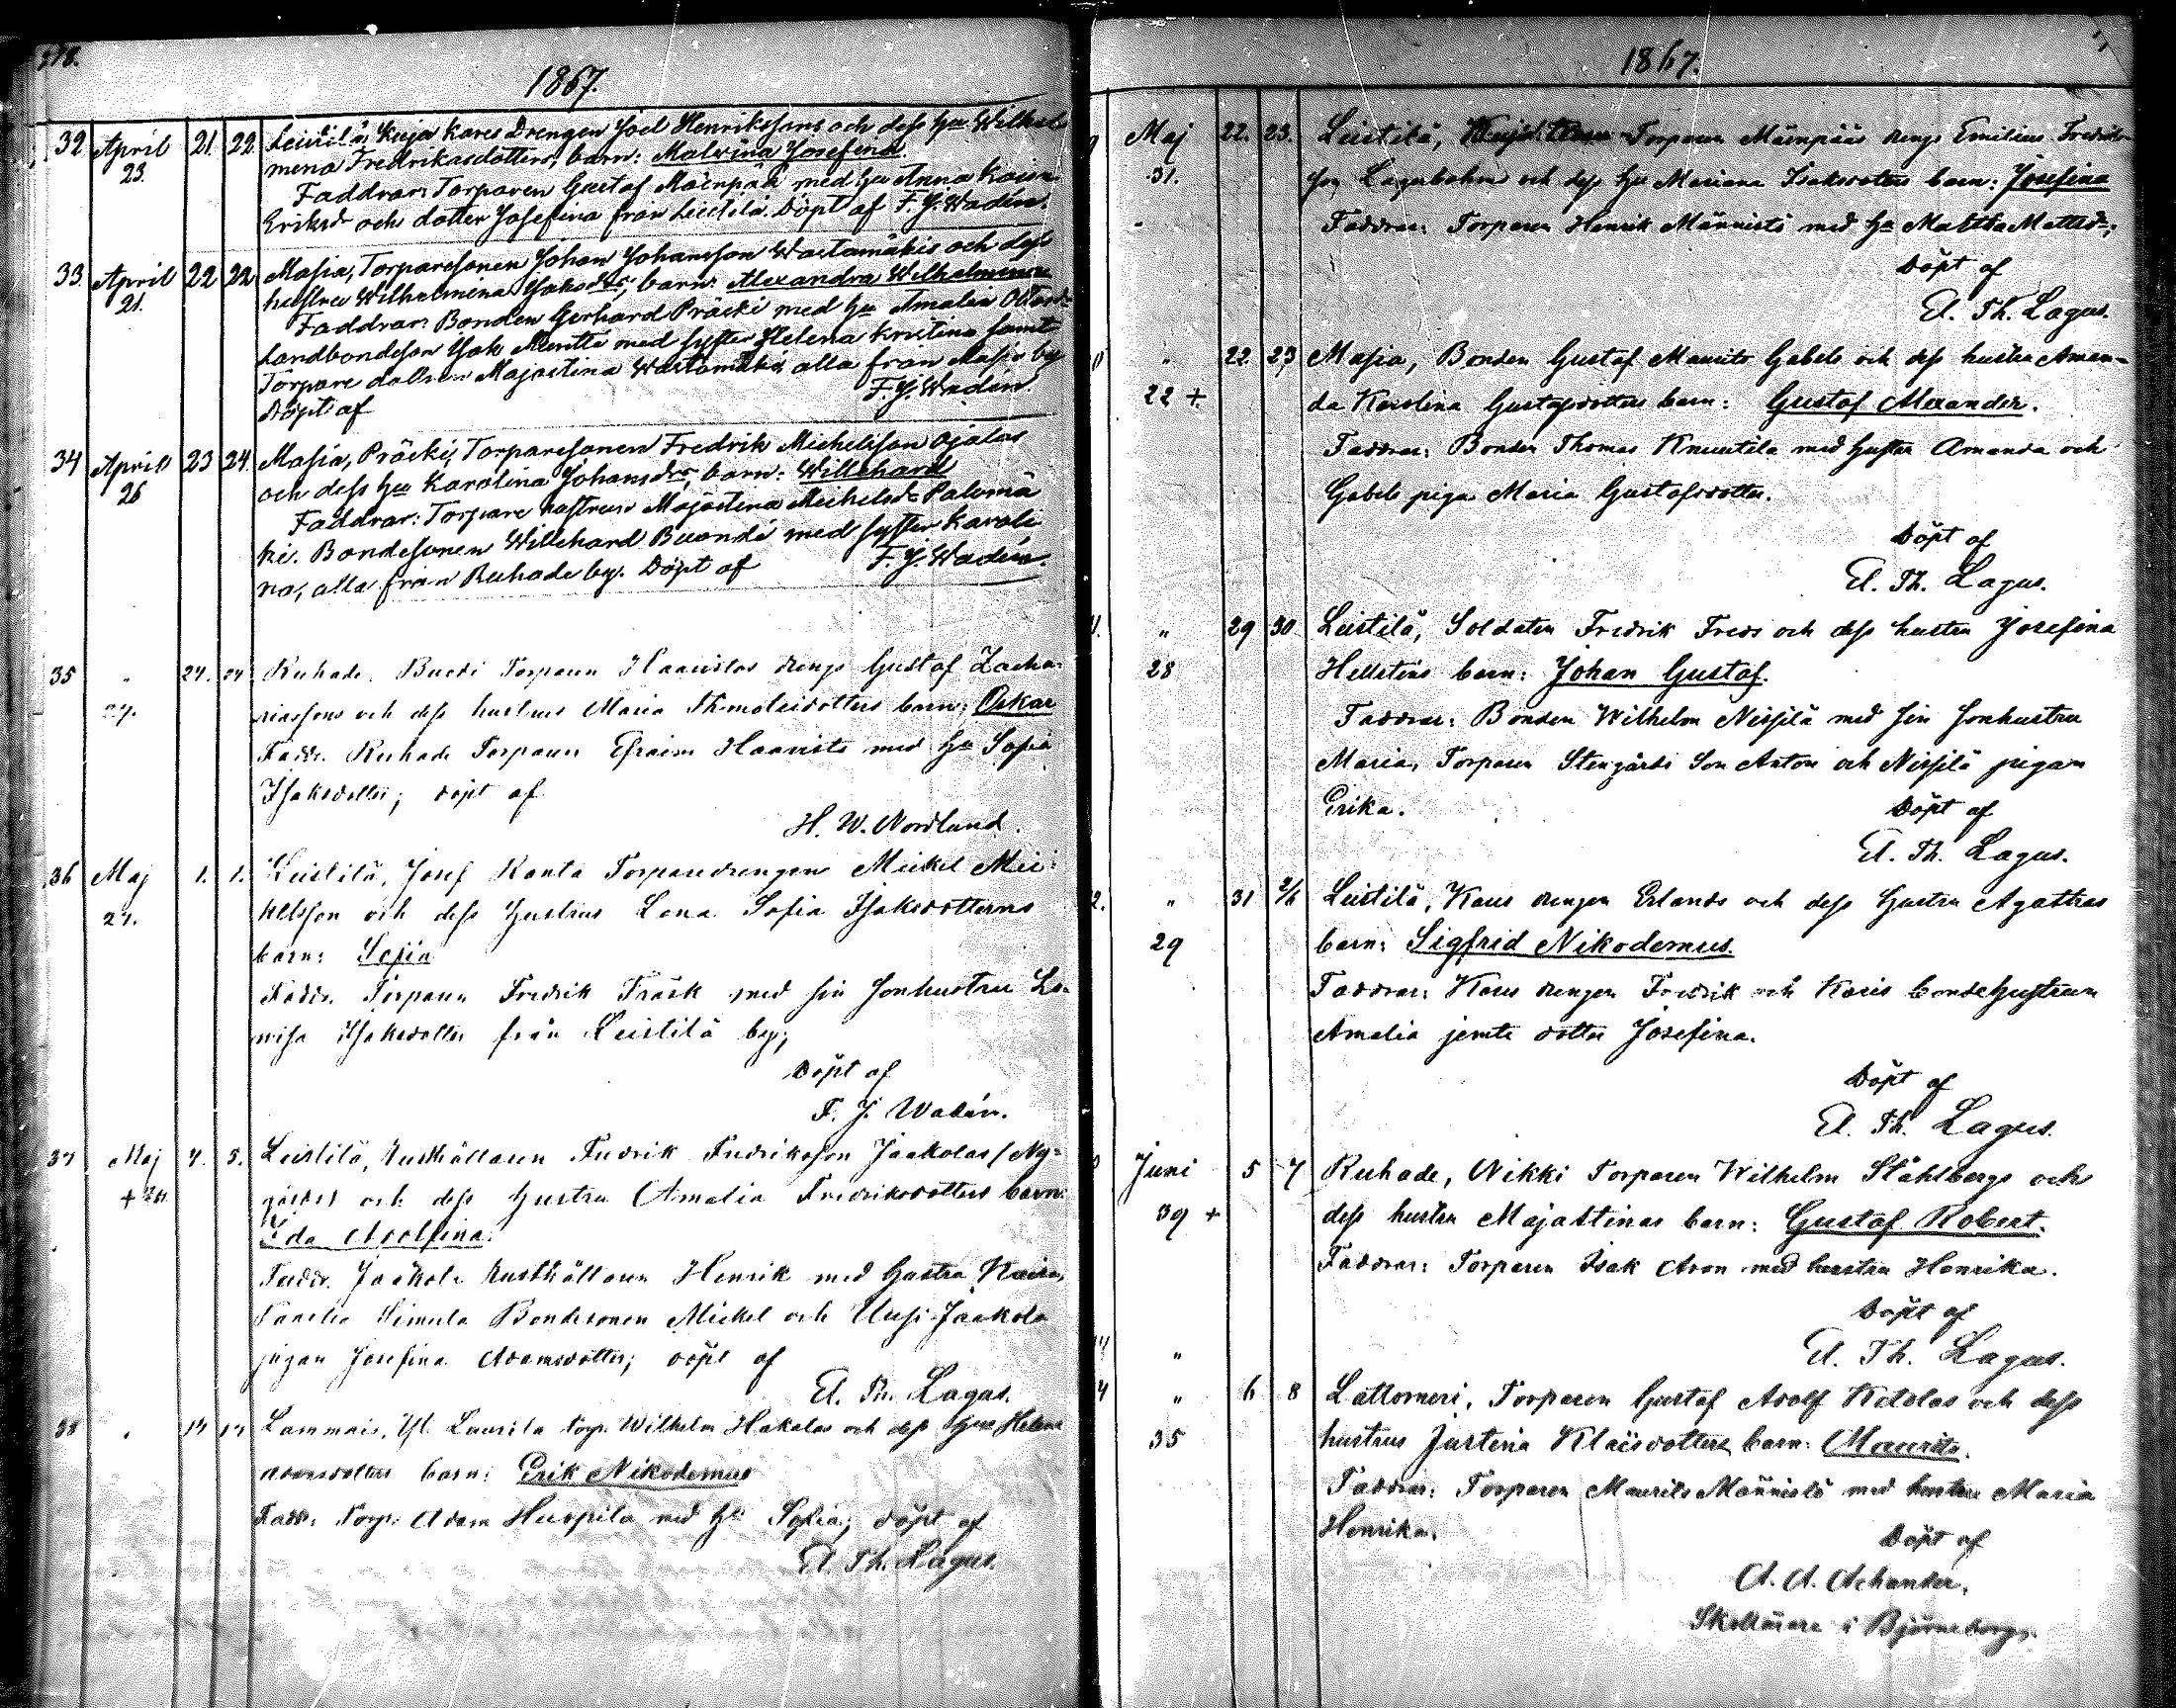 1867.
32 April 21. 22. Leistilä, Kuja Kares Drengen Joel Henrikssons och dess hu Wilhel
23. mina Fredriksdotters, barn: Malvina Josefina.
Faddrar: Torparen Gustaf Mäenpää med hu Anna Kaisa
Eriksd och dotter Josefina från Leistilä. Döpt af F. J. Wadén.
33. April 22 22 Masia, Torparesonen Johan Johansson Wastamäkis och dess
21. hustru Wilhelmina Isaksdrs, barn: Alexandra Wilhelmina
Faddrar: Bonden Gerhard Präski med hu Amalia
Landbondeson Isak Muntti med syster Helena Kristina samt
Torpare dottren Majastina Wastamäki alla från Masia by
Döpt af F. J. Wadén.
34 April 23 24. Masia, Präski, Torparesonen Fredrik Michelsson Ojalas
26 och dess hu Karolina Johansdrs, barn: Willehard
Faddrar: Torpare hustrun Majastina Michelsdr Palomä
ki. Bondesonen Willehard Buondi med syster Karoli
na, alla från Ruhade by. Döpt af F. J. Wadén.
35 " 24. 24 Ruhade, Torparen Haanistos drengs Gustaf Zacha-
riassons och dess hustrus Maria Thomteidotters barn: Oskar
Faddr. Ruhade Torparen Efraim Haanisto med hu Sofia
Isaksdotter; döpt af
H. W. Nordlund.
36 Maj 1. 1. Leistilä, Josef Ranta Torparedrengen Mickel Mic-
27. kelsson och dess hustrus Lena Sofia Isaksdotterns
barn: Sofia
Faddr. Torparen Fredrik Träsk med sin sonhustru Lo-
wisa Isaksdotter från Leistilä by;
Döpt af
F. J. Wadén.
37 Maj 4. 5. Leistilä, Rusthållaren Fredrik Fredriksson Jaakolas /Ny-
+ och dess hustru Amalia Fredriksdotters barn:
Ida Adolfina.
Faddr. Jaakola Rusthållaren Henrik med hustru Kaisa,
Simula Bondesonen Mickel och Uusi-Jaakola
pigan Josefina Adamsdotter; döpt af
El. Th. Lagus.
38 " Lammais, Yl. Laurila torp. Wilhelm Hakalas och dess hus Helena
Adamsdotters barn: Erik Nikodemus
Faddr: Torp. Adam Huspila med hu Sofia; döpt af
El. Th. Lagus.
1867.
Maj 22. 23. Leistilä, Torparen Mäenpääs drengs Emilius Fredriks-
31. son Lagerbohm och dess hu Mariana Isaksdotters barn: Josefina
Faddrar: Torparen Henrik Männistö med hu Mattsdr;
Döpt af
El. Th. Lagus.
" 22. 23 Masia, Bonden Gustaf Maurits Gabels och dess hustru Aman-
22 + da Karolina Gustafsdotters barn: Gustaf Alexander.
Faddrar: Bonden Thomas Knuutila med hustru Amanda och
Gabels piga Maria Gustafsdotter.
Döpt af
El. Th. Lagus.
" 29 30 Leistilä, Soldaten Fredrik Freds och dess hustru Josefina
28 Hellstens barn: Johan Gustaf.
Faddrar: Bonden Wilhelm Nissilä med sin sonhustru
Maria, Torparen Stengårds Son Anton och Nissilä pigan
Erika. Döpt af
El. Th. Lagus.
" 31 2/6 Leistilä, Kares drengen Erlands och dess hustru Agathas
29 barn: Sigfrid Nikodemus.
Faddrar: Kares drengen Fredrik och Karis bondehustrun
Amalia jemte dotter Josefina.
Döpt af
El. Th. Lagus.
Juni 5 7 Ruhade, Nikki Torparen Wilhelm Ståhlbergs och
39 + dess hustru Majastinas barn: Gustaf Robert.
Faddrar: Torparen Isak Aron med hustru Henrika.
Döpt af
" El. Th. Lagus.
" 6 8 Lattomeri, Torparen Gustaf Adolf Ketolas och dess
35 hustrus Justina Klaësdotters barn: Maurits.
Faddrar: Torparen Maurits Männistö med hustru Maria
Henrika. Döpt af
A. A. Achander,
Skollärare i Björneborg.